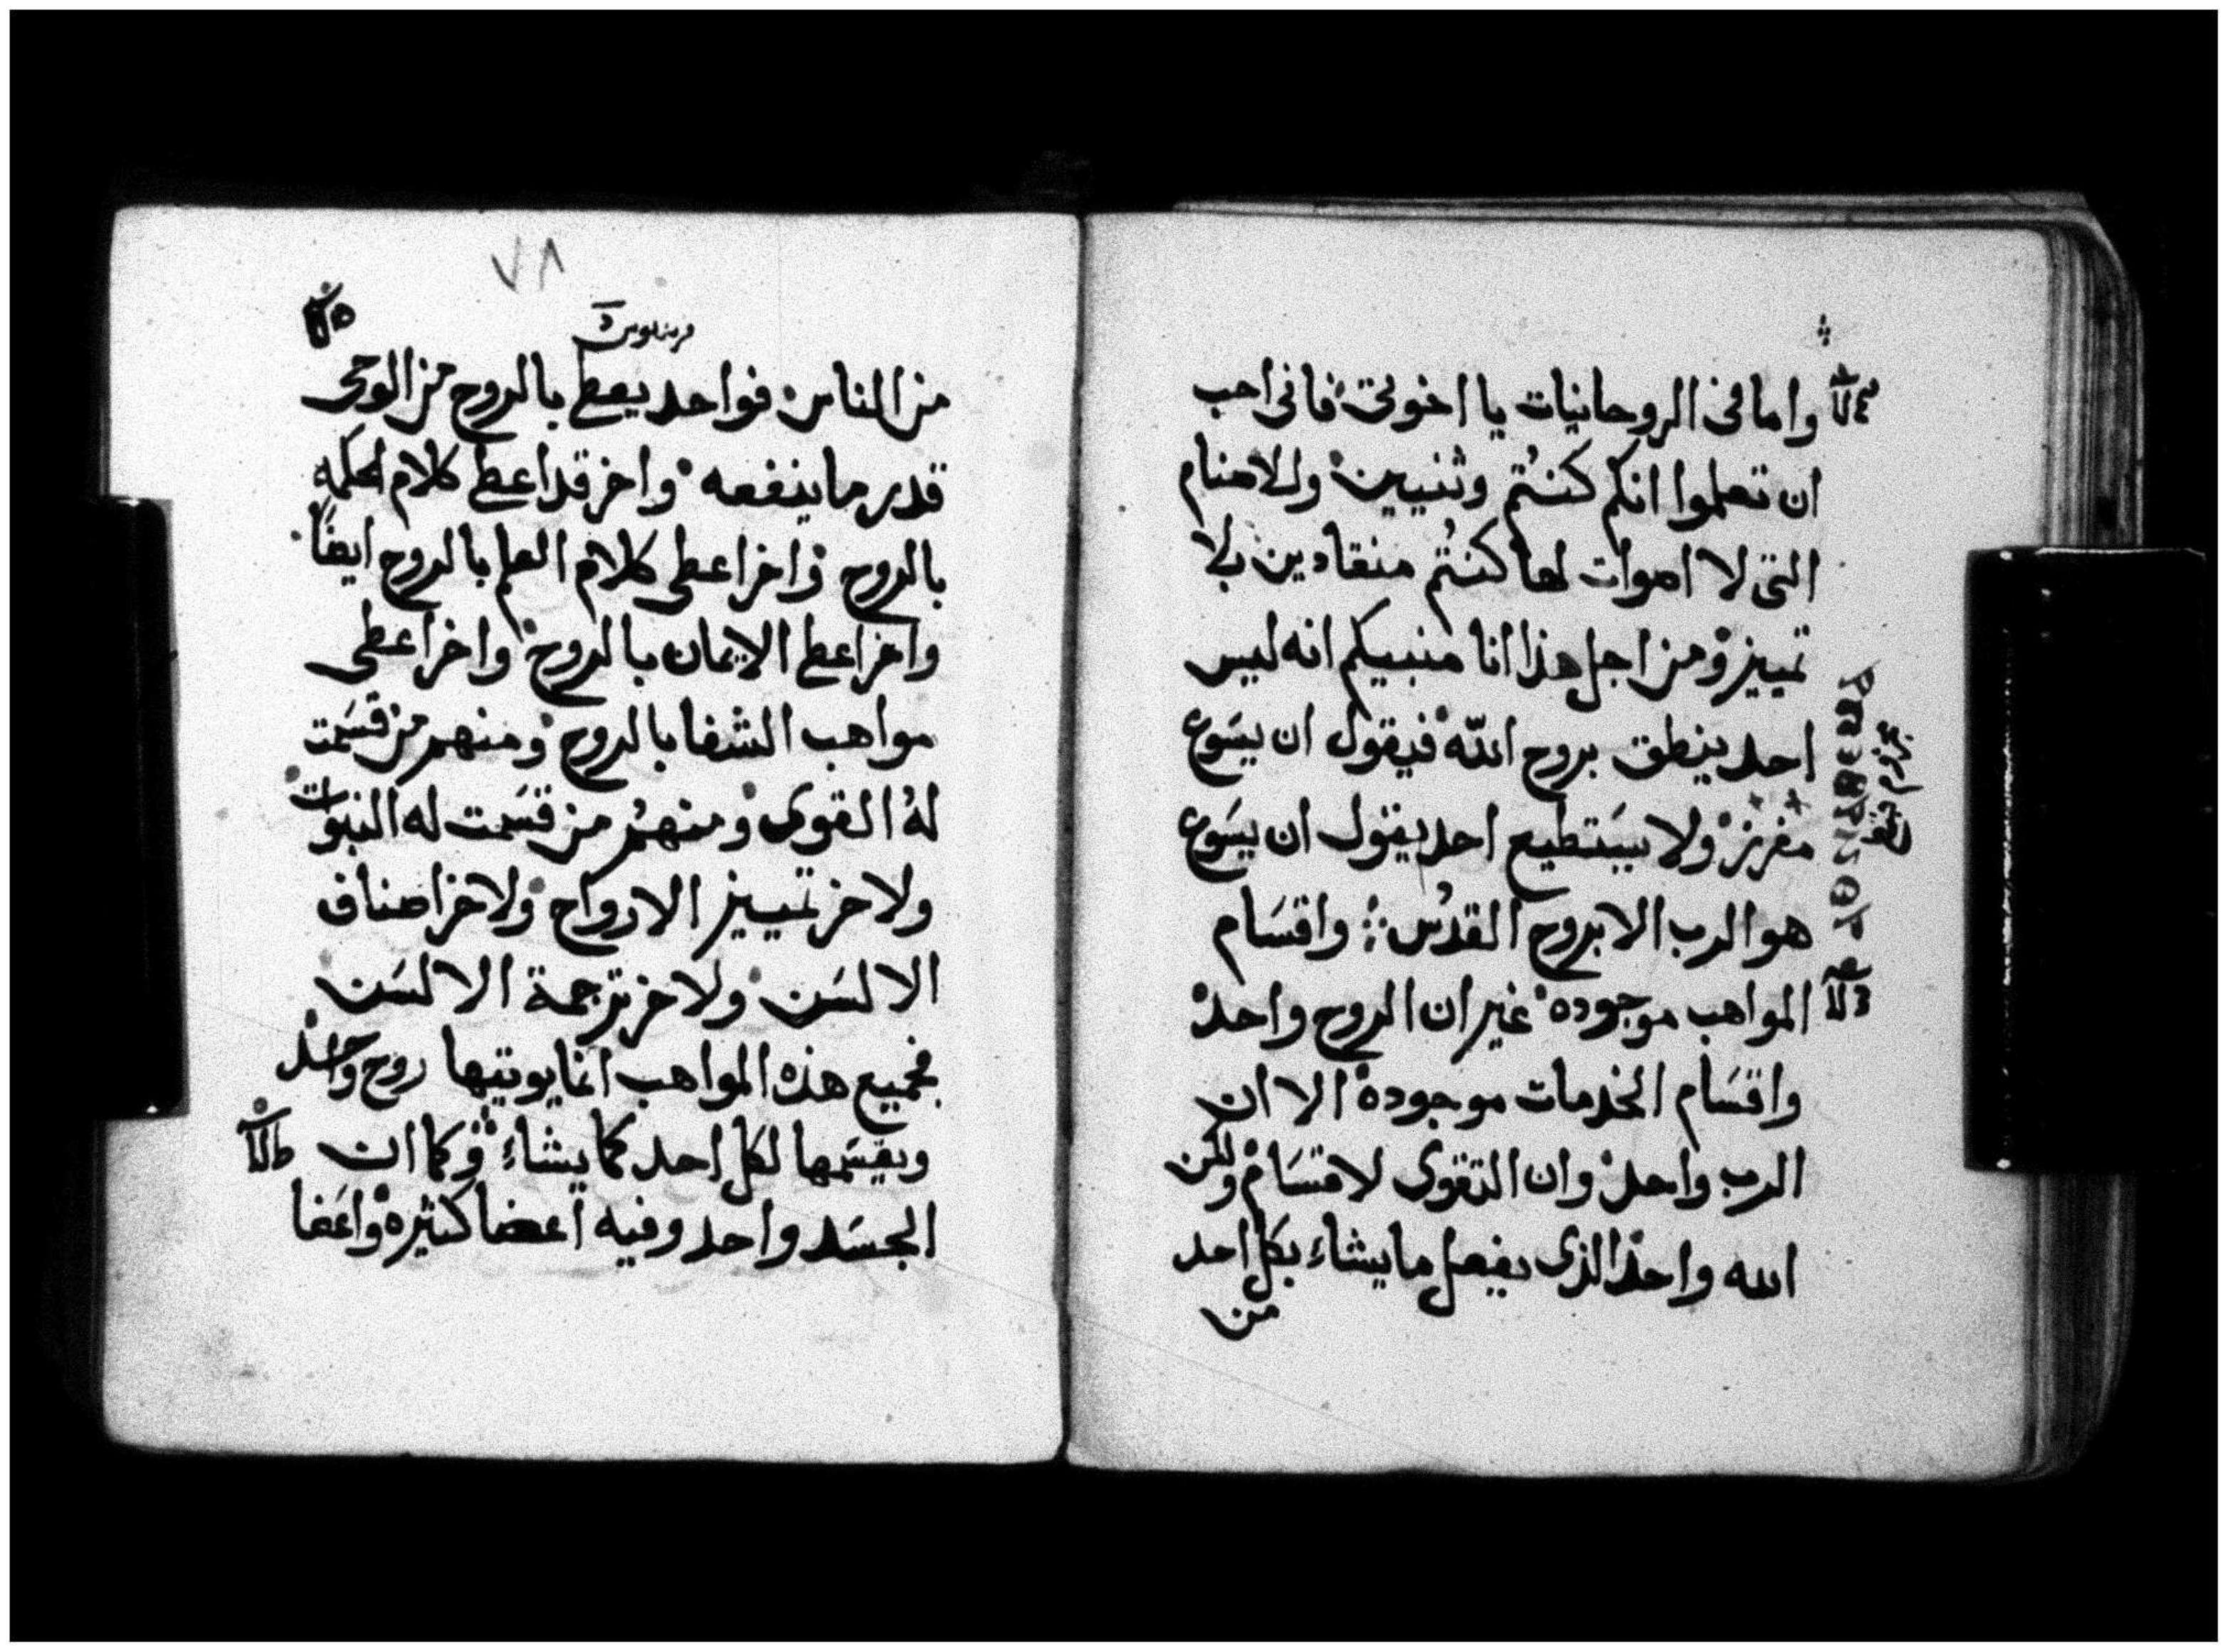 واما فى الروحانيات يا اخوتى فانى احب
ان تعلموا انكم كنتم وثنيين وللاصنام
التى لا اصوات لها كنتم منقادين بلا
تمييز ومن اجل هذا انا منبيكم انه ليس
احد ينطق بروح الله فيقول ان يسوع
مفرز ولا يستطيع احد يقول ان يسوع
هو الرب الا بروح القدس واقسام
المواهب موجوده غير ان الروح واحد
واقسام الخدمات موجودة الا ان
الرب واحد وان القوى لاقسام ولكن
الله واحد الذى يفعل ما يشاء بكل احد
من
٧٨
قرنتيوس
من الناس فواحد يعطى بالروح من الوحى
قدر ما ينفعه واخر قد اعطى كلام الحكمه
بالروح واخر اعطى كلام العلم بالروح ايضًا
واخر اعطى الايمان بالروح واخر اعطى
مواهب الشفا بالروح ومنهم من قسمت
له القوى ومنهم من قسمت له النبوات
ولاخر تمييز الارواح ولاخر اصناف
الالسن ولاخر ترجمة الالسن
فجميع هذه المواهب انما يوتيها روح واحد
ويقسمها لكل احد كما يشاء وكما ان
الجسد واحد وفيه اعضا كثيره واعضا